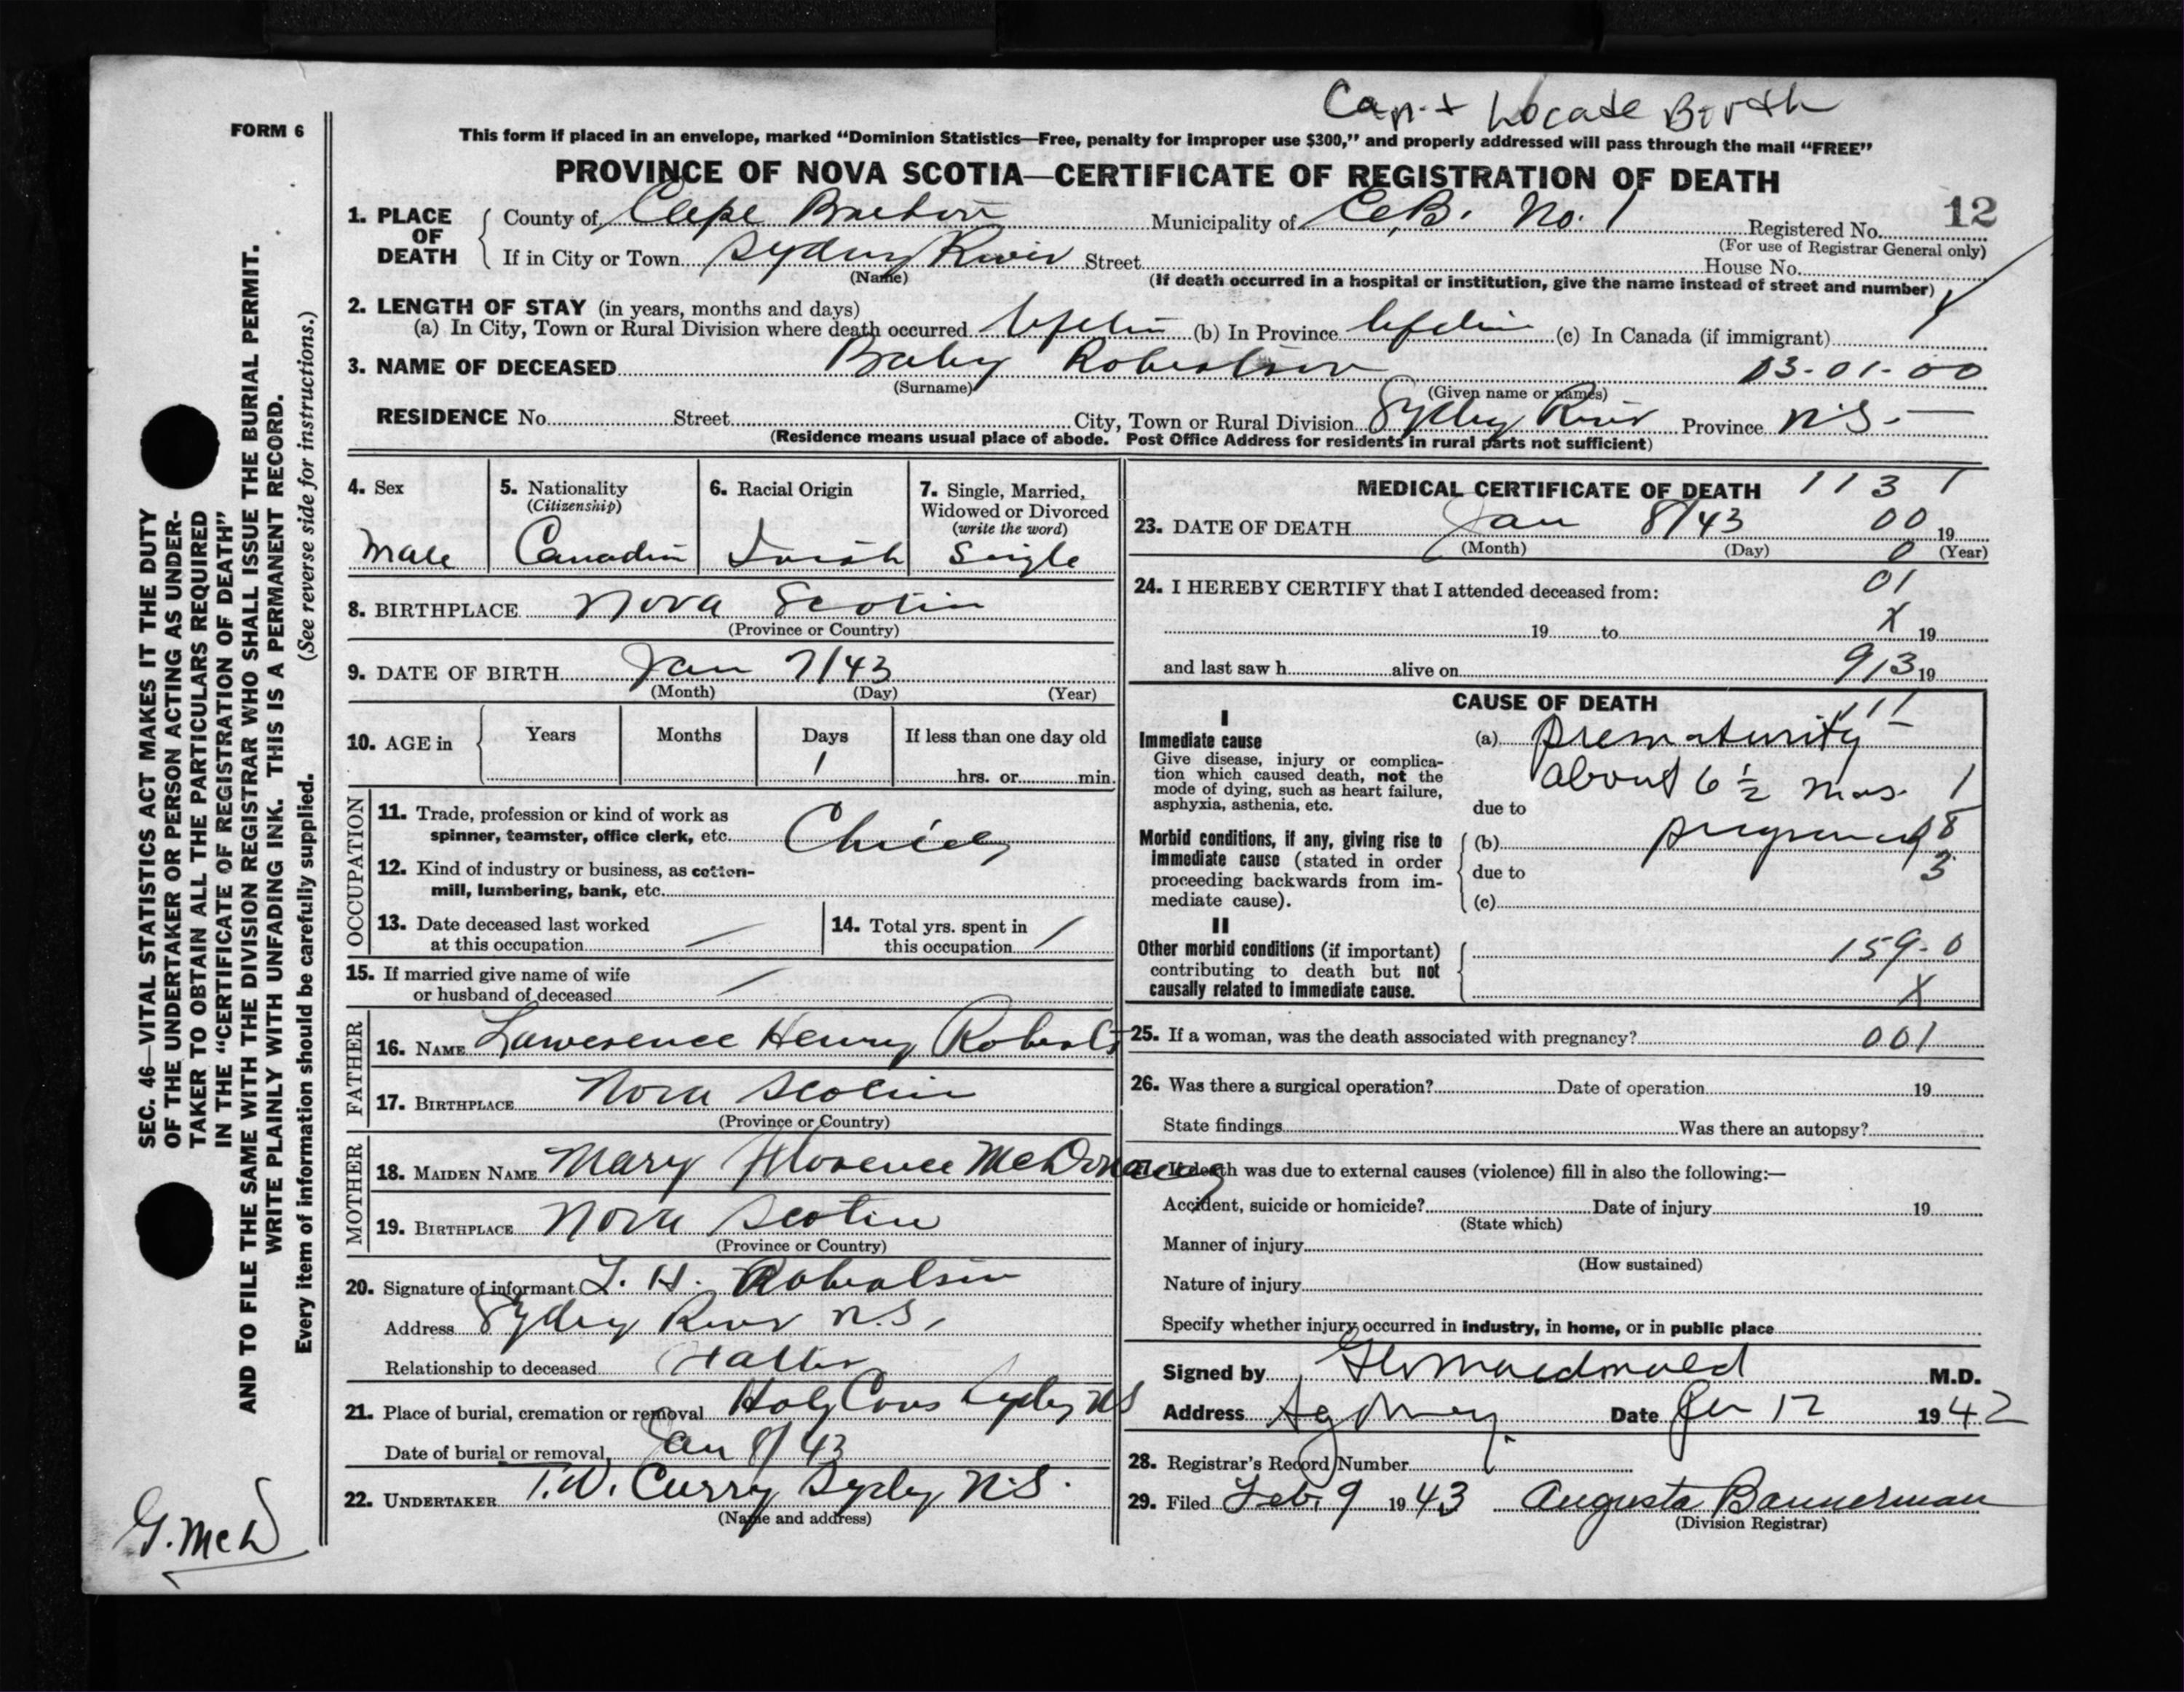 Can't Locate Birth
FORM 6
This form if placed in an envelope, marked "Dominion Statistics—Free, penalty for improper use $300," and properly addressed will pass through the mail "FREE"
PROVINCE OF NOVA SCOTIA—CERTIFICATE OF REGISTRATION OF DEATH
12
1. PLACE OF DEATH
County of Cape Breton Municipality of C.B. No. 1 Registered No.
(For use of Registrar General only)
If in City or Town Sydney River Street House No.
(Name) (If death occurred in a hospital or institution, give the name instead of street and number)
2. LENGTH OF STAY (in years, months and days)
(a) In City, Town or Rural Division where death occurred lifetime (b) In Province lifetime (c) In Canada (if immigrant)
3. NAME OF DECEASED Baby Robertson 13-01-00
(Surname) (Given name or names)
RESIDENCE No. Street City, Town or Rural Division Sydney River Province N.S.
(Residence means usual place of abode. Post Office Address for residents in rural parts not sufficient)
4. Sex
Male
5. Nationality
(Citizenship)
6. Racial Origin
7. Single, Married, Widowed or Divorced
(write the word)
Single
8. BIRTHPLACE Nova Scotia
(Province or Country)
9. DATE OF BIRTH Jan 7/43
(Month) (Day) (Year)
10. AGE in
Years
Months
Days
1
If less than one day old
hrs. or min.
OCCUPATION
11. Trade, profession or kind of work as
spinner, teamster, office clerk, etc. Child
12. Kind of industry or business, as cotton-
mill, lumbering, bank, etc.
13. Date deceased last worked
at this occupation
14. Total yrs. spent in
this occupation
15. If married give name of wife
or husband of deceased
FATHER
16. NAME Lawerence Henry Roberts
17. BIRTHPLACE Nova Scotia
(Province or Country)
MOTHER
18. MAIDEN NAME Mary Florence McDonald
19. BIRTHPLACE Nova Scotia
(Province or Country)
20. Signature of informant L. H. Robertson
Address Sydney River N.S.
Relationship to deceased Father
21. Place of burial, cremation or removal Holy Cross Sydney NS
Date of burial or removal Jan 8/43
22. UNDERTAKER T.W. Curry Sydney N.S.
(Name and address)
MEDICAL CERTIFICATE OF DEATH 113 1
23. DATE OF DEATH Jan 8/43 00 19
(Month) (Day) 0 (Year)
24. I HEREBY CERTIFY that I attended deceased from: 01
19 to X 19
and last saw h alive on 913 19
CAUSE OF DEATH
111
I
Immediate cause
Give disease, injury or complica-
tion which caused death, not the
mode of dying, such as heart failure,
asphyxia, asthenia, etc.
(a) prematurity
about 6 1/2 mos. 1
due to
Morbid conditions, if any, giving rise to
immediate cause (stated in order
proceeding backwards from im-
mediate cause).
(b) pregnancy 8
due to 3
(c)
II
Other morbid conditions (if important)
contributing to death but not
causally related to immediate cause.
159-0
X
25. If a woman, was the death associated with pregnancy? 001
26. Was there a surgical operation? Date of operation 19
State findings Was there an autopsy?
If death was due to external causes (violence) fill in also the following:—
Accident, suicide or homicide? Date of injury 19
(State which)
Manner of injury
(How sustained)
Nature of injury
Specify whether injury occurred in industry, in home, or in public place
Signed by Macdonald M.D.
Address Sydney. Date Jan 12 1942
28. Registrar's Record Number
29. Filed Feb. 9 1943 Augusta Bannerman
(Division Registrar)
SEC. 46—VITAL STATISTICS ACT MAKES IT THE DUTY
OF THE UNDERTAKER OR PERSON ACTING AS UNDER-
TAKER TO OBTAIN ALL THE PARTICULARS REQUIRED
IN THE "CERTIFICATE OF REGISTRATION OF DEATH"
AND TO FILE THE SAME WITH THE DIVISION REGISTRAR WHO SHALL ISSUE THE BURIAL PERMIT.
WRITE PLAINLY WITH UNFADING INK. THIS IS A PERMANENT RECORD.
Every item of information should be carefully supplied. (See reverse side for instructions.)